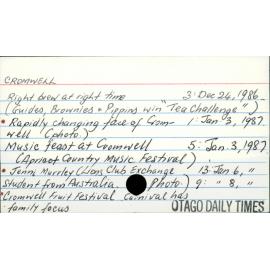 CROMWELL
Right brew at right time 3: Dec 24, 1986
(Guides, Brownies & Pippins win "Tea Challenge")
• Rapidly changing face of Crom- 1: Jan 3, 1987
well (photo.)
Music feast at Cromwell 5: Jan. 3, 1987
(Apricot Country Music Festival)
• Jenni Murrley (Lions Club Exchange 13: Jan 6, "
Student from Australia. (Photo.) 9: " 8, "
• Cromwell Fruit Festival Carnival has
family focus OTAGO DAILY TIMES